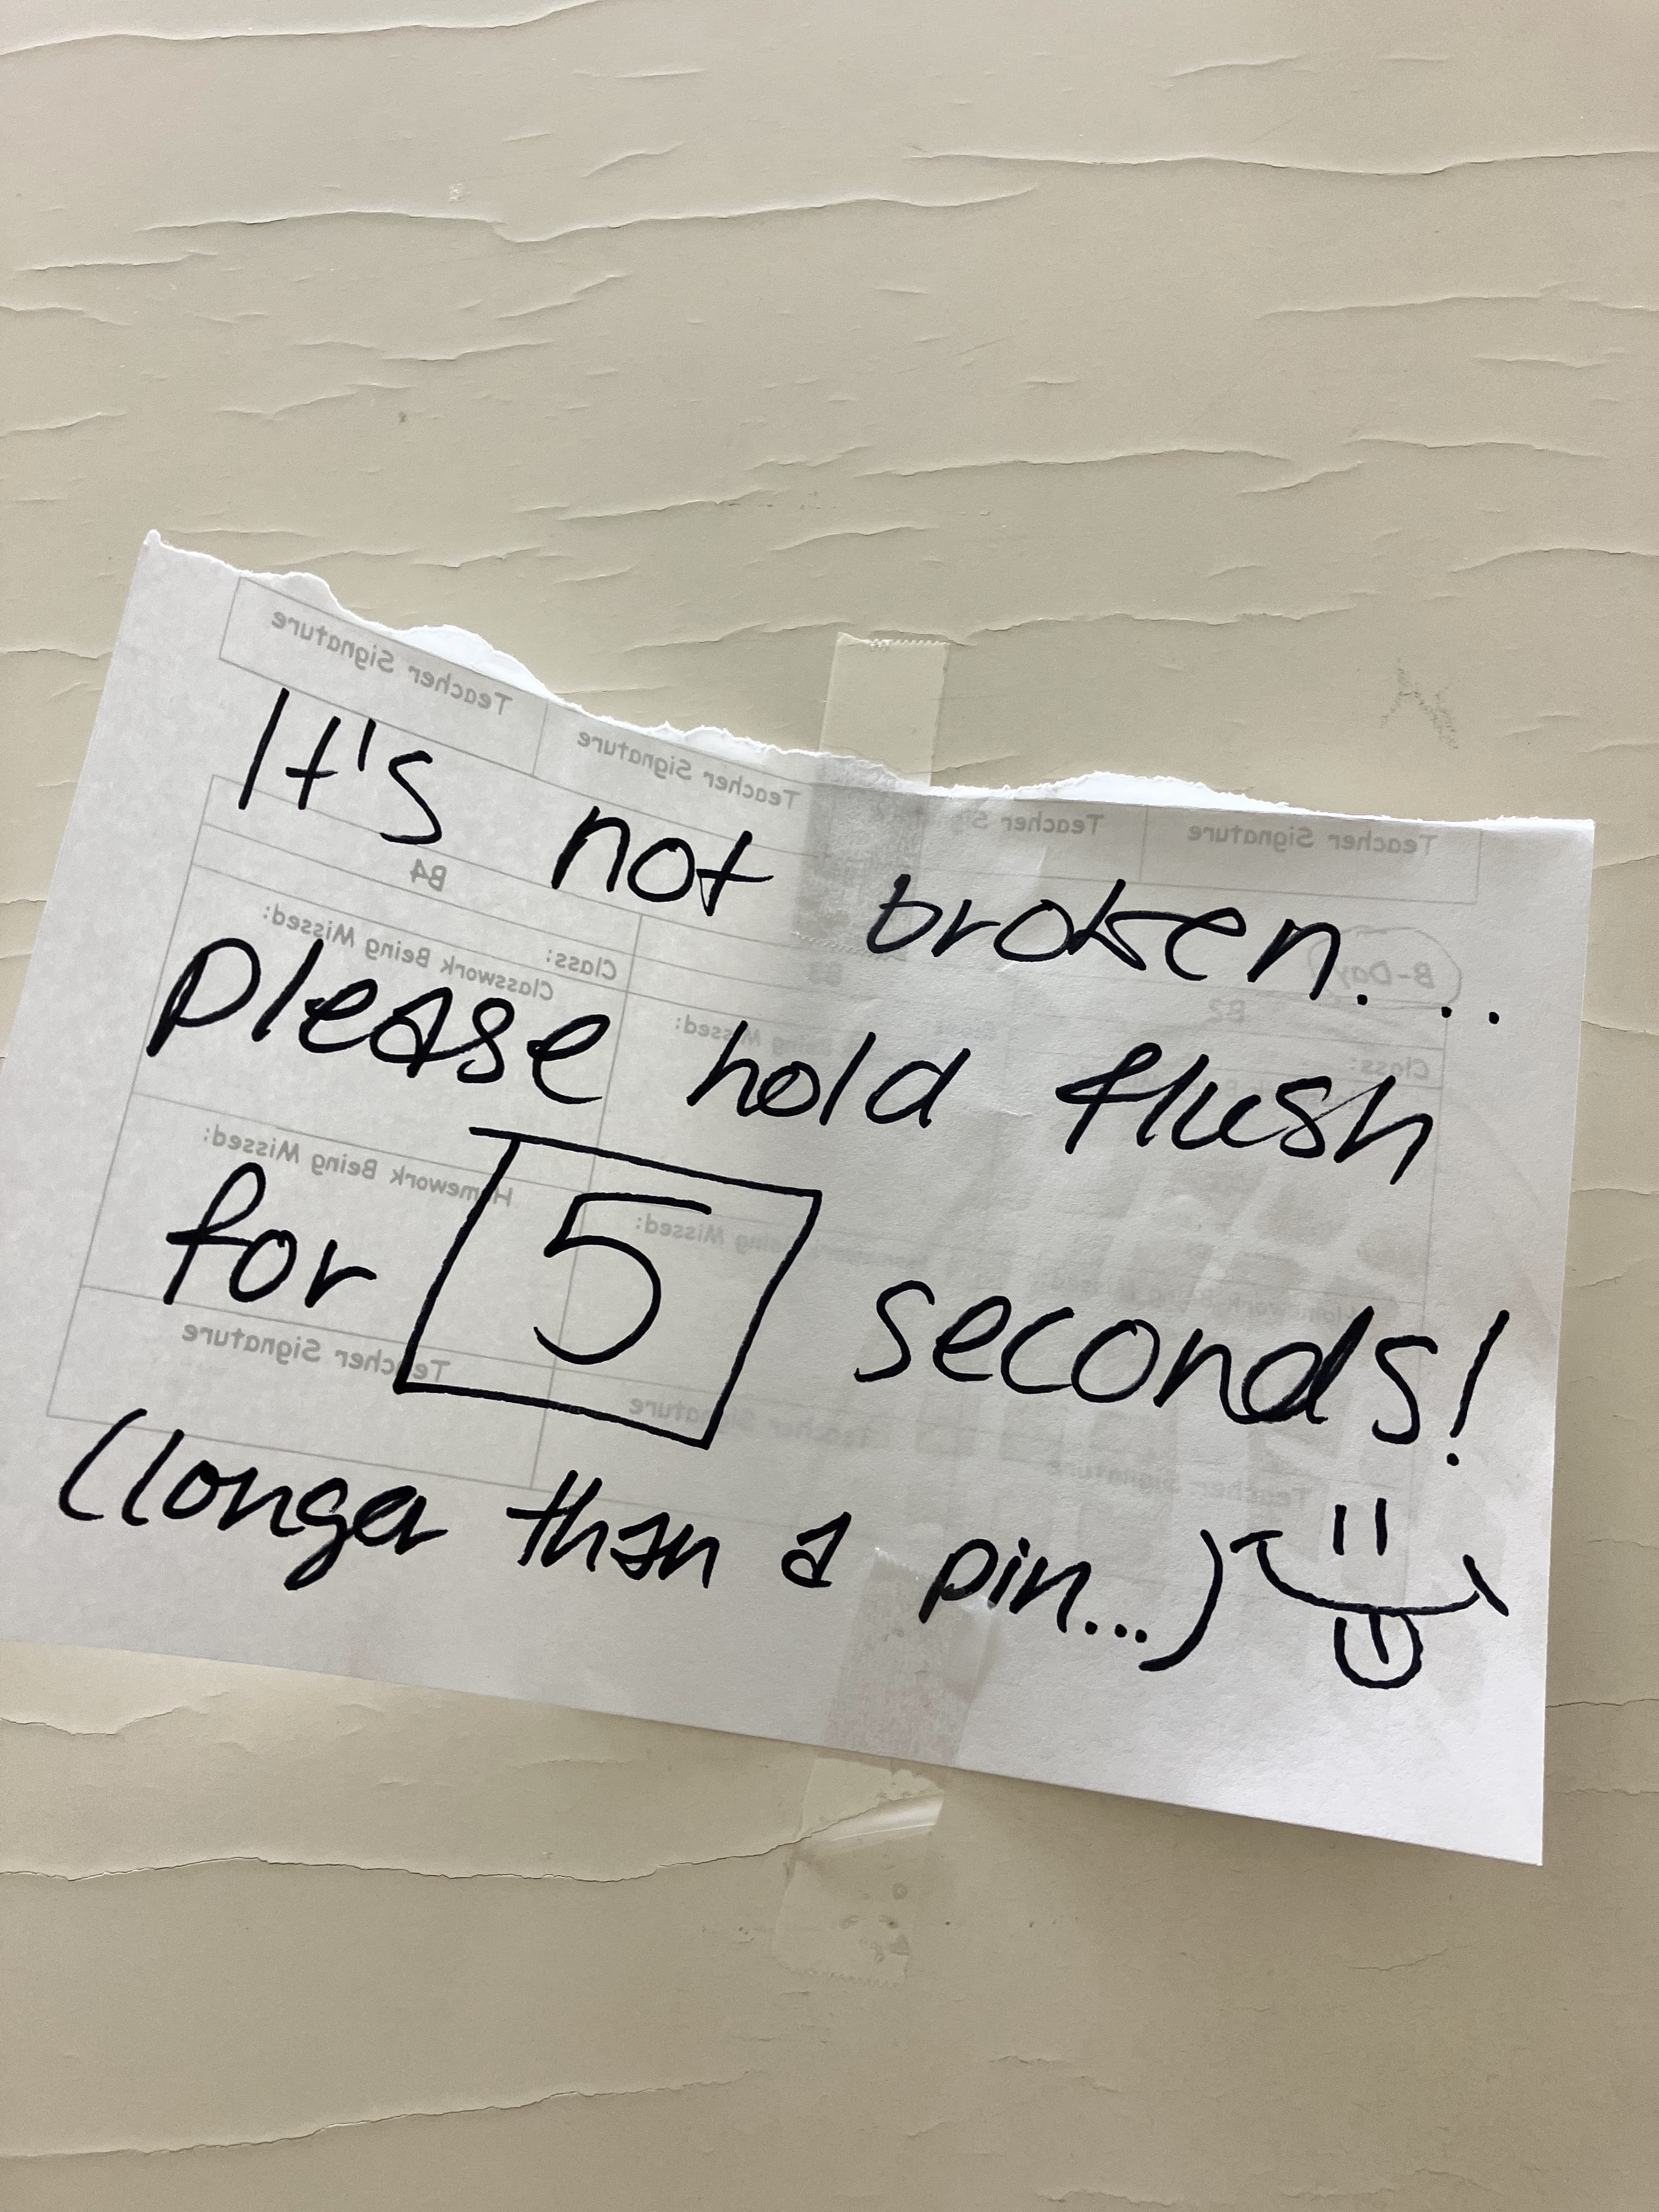 It's not broken...
please hold flush
for 5 seconds!
(longer than a pin...)
Teacher Signature
Teacher Signature
Teacher Signature
B-Day
B4
B2
Class:
Class:
Classwork Being Missed:
Being Missed:
Homework Being Missed:
Being Missed:
Homework Being Missed:
Teacher Signature
Teacher Signature
Teacher Signature